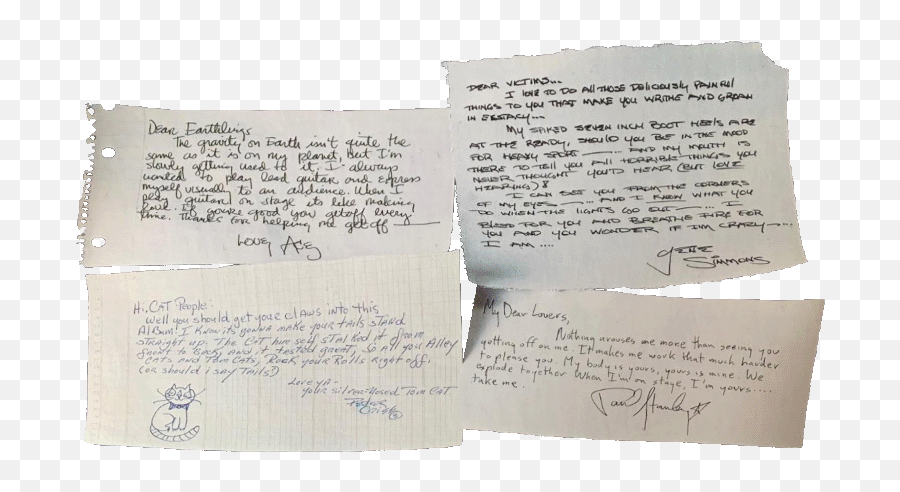 Dear Earthlings
The gravity on Earth isn't quite the
same as it is on my planet, But I'm
slowly getting used to it. I always
wanted to play lead guitar and express
myself visually to an audience. When I
play guitar on stage its like making
love. If you're good you get off every
time. Thanks for helping me get off
Love, Ace
DEAR VICTIMS...
I LOVE TO DO ALL THOSE DELICIOUSLY PAINFUL
THINGS TO YOU THAT MAKE YOU WRITHE AND GROAN
IN ECSTACY...
MY SPIKED SEVEN INCH BOOT HEELS ARE
AT THE READY, SHOULD YOU BE IN THE MOOD
FOR HEAVY SPORT ... AND MY MOUTH IS
THERE TO TELL YOU ALL HORRIBLE THINGS YOU
NEVER THOUGHT YOU'D HEAR (BUT LOVE
HEARING)!
I CAN SEE YOU FROM THE CORNERS
OF MY EYES ... AND I KNOW WHAT YOU
DO WHEN THE LIGHTS GO OUT ... I
BLEED FOR YOU AND BREATHE FIRE FOR
YOU AND YOU WONDER IF I'M CRAZY ...
I AM ....
GENE
SIMMONS
Hi, CAT People:
Well you should get your claws into this
Album! I Know its gonna make your tails stand
straight up. The CAT himself stalked it from
front to Back, and it tasted great, so all you Alley
Cats and Tom Cats, Rock your Rolls Right off.
(or should i say Tails?)
Love ya -
your silver-nosed Tom CAT
Peter
Criss
My Dear Lovers,
Nothing arouses me more than seeing you
getting off on me. It makes me work that much harder
to please you. My body is yours, yours is mine. We
explode together When I'm on stage, I'm yours....
take me.
Paul Stanley